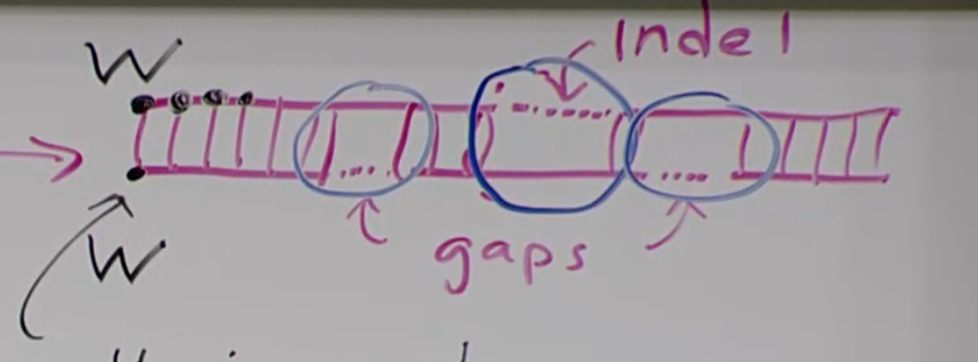 Indel
W
gaps
W